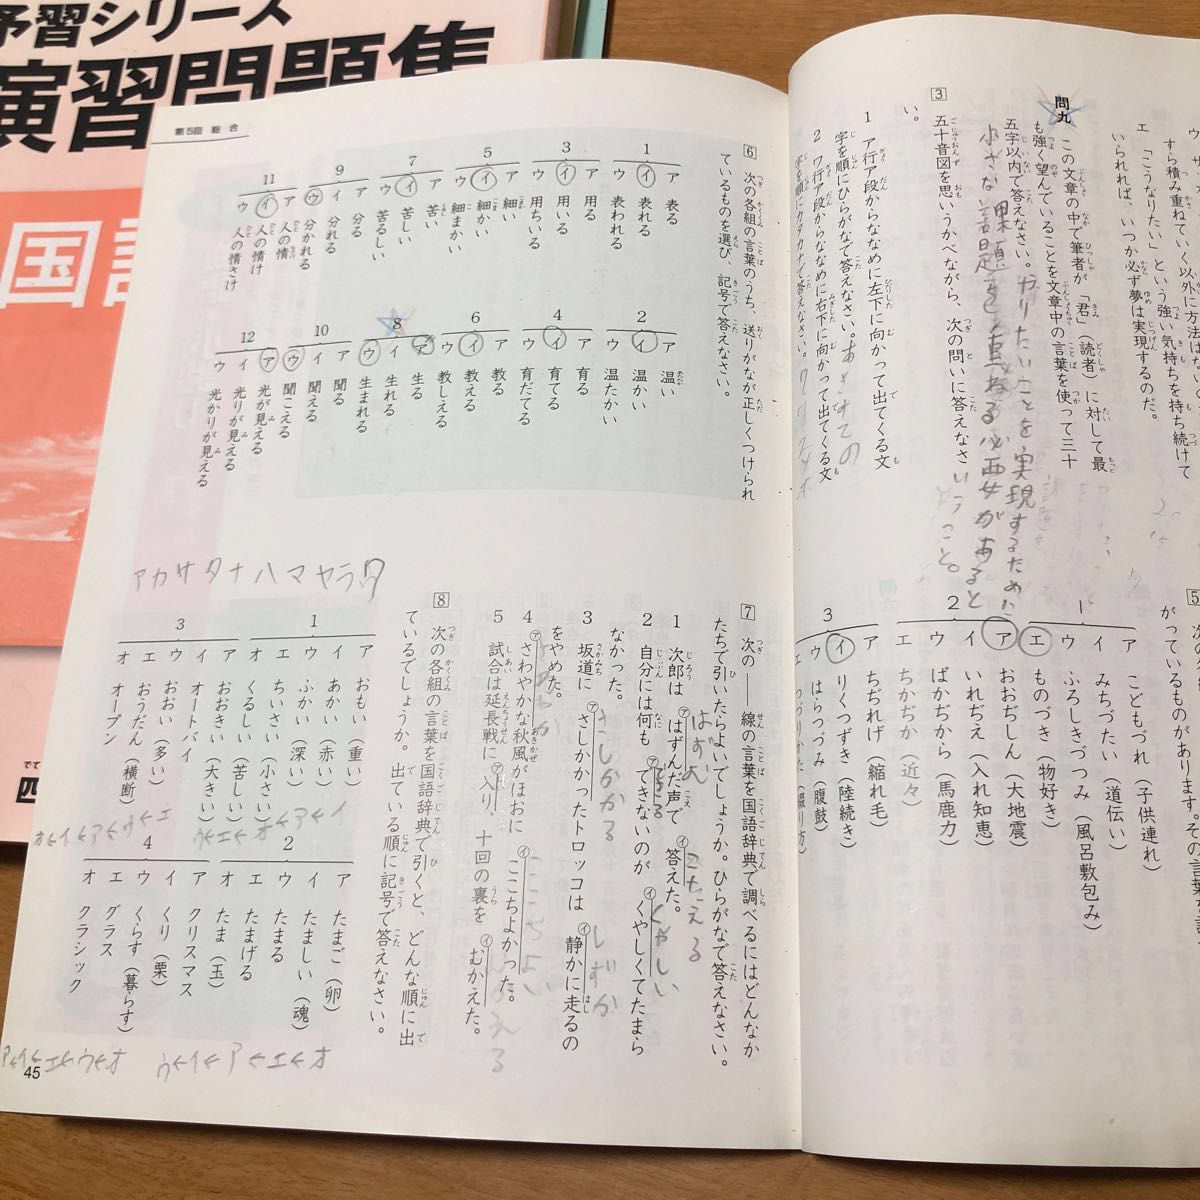 予習シリーズ
演習問題集
国語
ウ
すら積み重ねていく以外に方法はな
エ 「こうなりたい」という強い気持ちを持ち続けて
いられれば、いつか必ず夢は実現するのだ。
問九 この文章の中で筆者が「君」(読者)に対して最
も強く望んでいることを文章中の言葉を使って三十
五字以内で答えなさい。
やりたいことを実現するために
小さな課題を重ねる必要があると
いうこと。
3 五十音図を思いうかべながら、次の問いに答えなさ
い。
1 ア行ア段からななめに左下に向かって出てくる文
字を順にひらがなで答えなさい。
2 ワ行ア段からななめに右下に向かって出てくる文
字を順にカタカナで答えなさい。
5
がっているものを
1
ア こどもづれ(子供連れ)
イ みちづたい(道伝い)
ウ ふろしきづつみ(風呂敷包み)
エ ものづき(物好き)
2
ア おおぢしん(大地震)
イ いれぢえ(入れ知恵)
ウ ばかぢから(馬鹿力)
エ ちかぢか(近々)
3
ア ちぢれげ(縮れ毛)
イ りくつずき(陸続き)
ウ はらつづみ(腹鼓)
エ つづりかた(綴り方)
第5回 総合
6 次の各組の言葉のうち、送りがなが正しくつけられ
ているものを選び、記号で答えなさい。
1
ア 表る
イ 表れる
ウ 表われる
3
ア 用る
イ 用いる
ウ 用ちいる
5
ア 細い
イ 細かい
ウ 細まかい
7
ア 苦い
イ 苦しい
ウ 苦るしい
9
ア 分る
イ 分れる
ウ 分かれる
11
ア 人の情
イ 人の情け
ウ 人の情さけ
2
ア 温い
イ 温かい
ウ 温たかい
4
ア 育る
イ 育てる
ウ 育だてる
6
ア 教る
イ 教える
ウ 教しえる
8
ア 生る
イ 生れる
ウ 生まれる
10
ア 聞る
イ 聞える
ウ 聞こえる
12
ア 光が見える
イ 光りが見える
ウ 光かりが見える
アカサタナハマヤラワ
7 次の――線の言葉を国語辞典で調べるにはどんなか
たちで引いたらよいでしょうか。ひらがなで答えなさい。
1 次郎は ㋐はずんだ声で ㋑答えた。
はずむ
こたえる
2 自分には何も ㋐できないのが ㋑くやしくてたまら
なかった。
できる
くやしい
3 坂道に ㋐さしかかったトロッコは ㋑静かに走るの
をやめた。
さしかかる
しずか
4 ㋐さわやかな秋風がほおに ㋑ここちよかった。
さわやか
ここちよい
5 試合は延長戦に ㋐入り 十回の裏を ㋑むかえた。
8 次の各組の言葉を国語辞典で引くと、どんな順に出
ているでしょうか。出ている順に記号で答えなさい。
1
ア おもい(重い)
イ あかい(赤い)
ウ ふかい(深い)
エ ちいさい(小さい)
オ くるしい(苦しい)
3
ア おおきい(大きい)
イ オートバイ
ウ おおい(多い)
エ おうだん(横断)
オ オープン
2
ア たまご(卵)
イ たましい(魂)
ウ たまる
エ たまげる
オ たま(玉)
4
ア クリスマス
イ くり(栗)
ウ くらす(暮らす)
エ グラス
オ クラシック
45